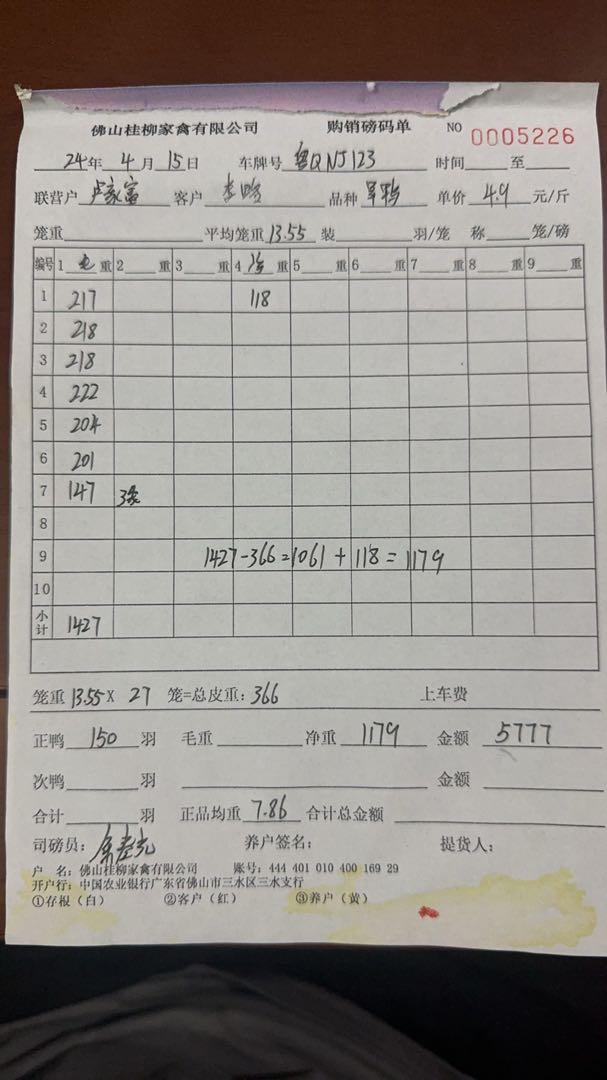 佛山桂柳家禽有限公司 购销磅码单 NO 0005226
24年 4 月 15 日 车牌号 粤QNJ123 时间 至
联营户 卢家富 客户 李 品种 旱鸭 单价 4.9 元/斤
笼重 平均笼重 13.55 装 羽/笼 称 笼/磅
编号 1 毛 重 2 重 3 重 4 重 5 重 6 重 7 重 8 重 9 重
1 217 118
2 218
3 218
4 222
5 204
6 201
7 147 3
8
9 1427-366=1061+118=1179
10
小计 1427
笼重 13.55 X 27 笼=总皮重:366 上车费
正鸭 150 羽 毛重 净重 1179 金额 5777
次鸭 羽 金额
合计 羽 正品均重 7.86 合计总金额
司磅员: 养户签名: 提货人:
户 名:佛山桂柳家禽有限公司 账号:444 401 010 400 169 29
开户行:中国农业银行广东省佛山市三水区三水支行
①存根(白) ②客户(红) ③养户(黄)